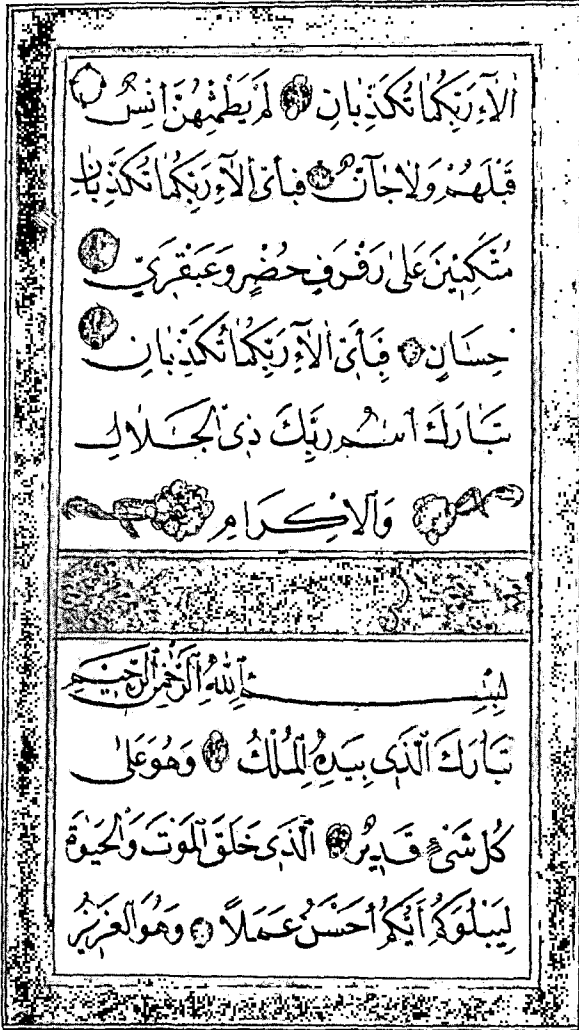 اٰلاٰءِ رَبِّكُمٰا تُكَذِّبٰانِ لَمْ يَطْمِثْهُنَّ اِنْسٌ
قَبْلَهُمْ وَلاٰ جٰآنٌّ فَبِاَىِّ اٰلاٰءِ رَبِّكُمٰا تُكَذِّبٰانِ
مُتَّكِئِينَ عَلىٰ رَفْرَفٍ خُضْرٍ وَعَبْقَرِيٍّ
حِسٰانٍ فَبِاَىِّ اٰلاٰءِ رَبِّكُمٰا تُكَذِّبٰانِ
تَبٰارَكَ اسْمُ رَبِّكَ ذِى الْجَلاٰلِ
وَالْاِكْرٰامِ
بِسْمِ اللهِ الرَّحْمٰنِ الرَّحِيمِ
تَبٰارَكَ الَّذِى بِيَدِهِ الْمُلْكُ وَهُوَ عَلىٰ
كُلِّ شَىْءٍ قَدِيرٌ الَّذِى خَلَقَ الْمَوْتَ وَالْحَيٰوةَ
لِيَبْلُوَكُمْ اَيُّكُمْ اَحْسَنُ عَمَلاً وَهُوَ الْعَزِيزُ